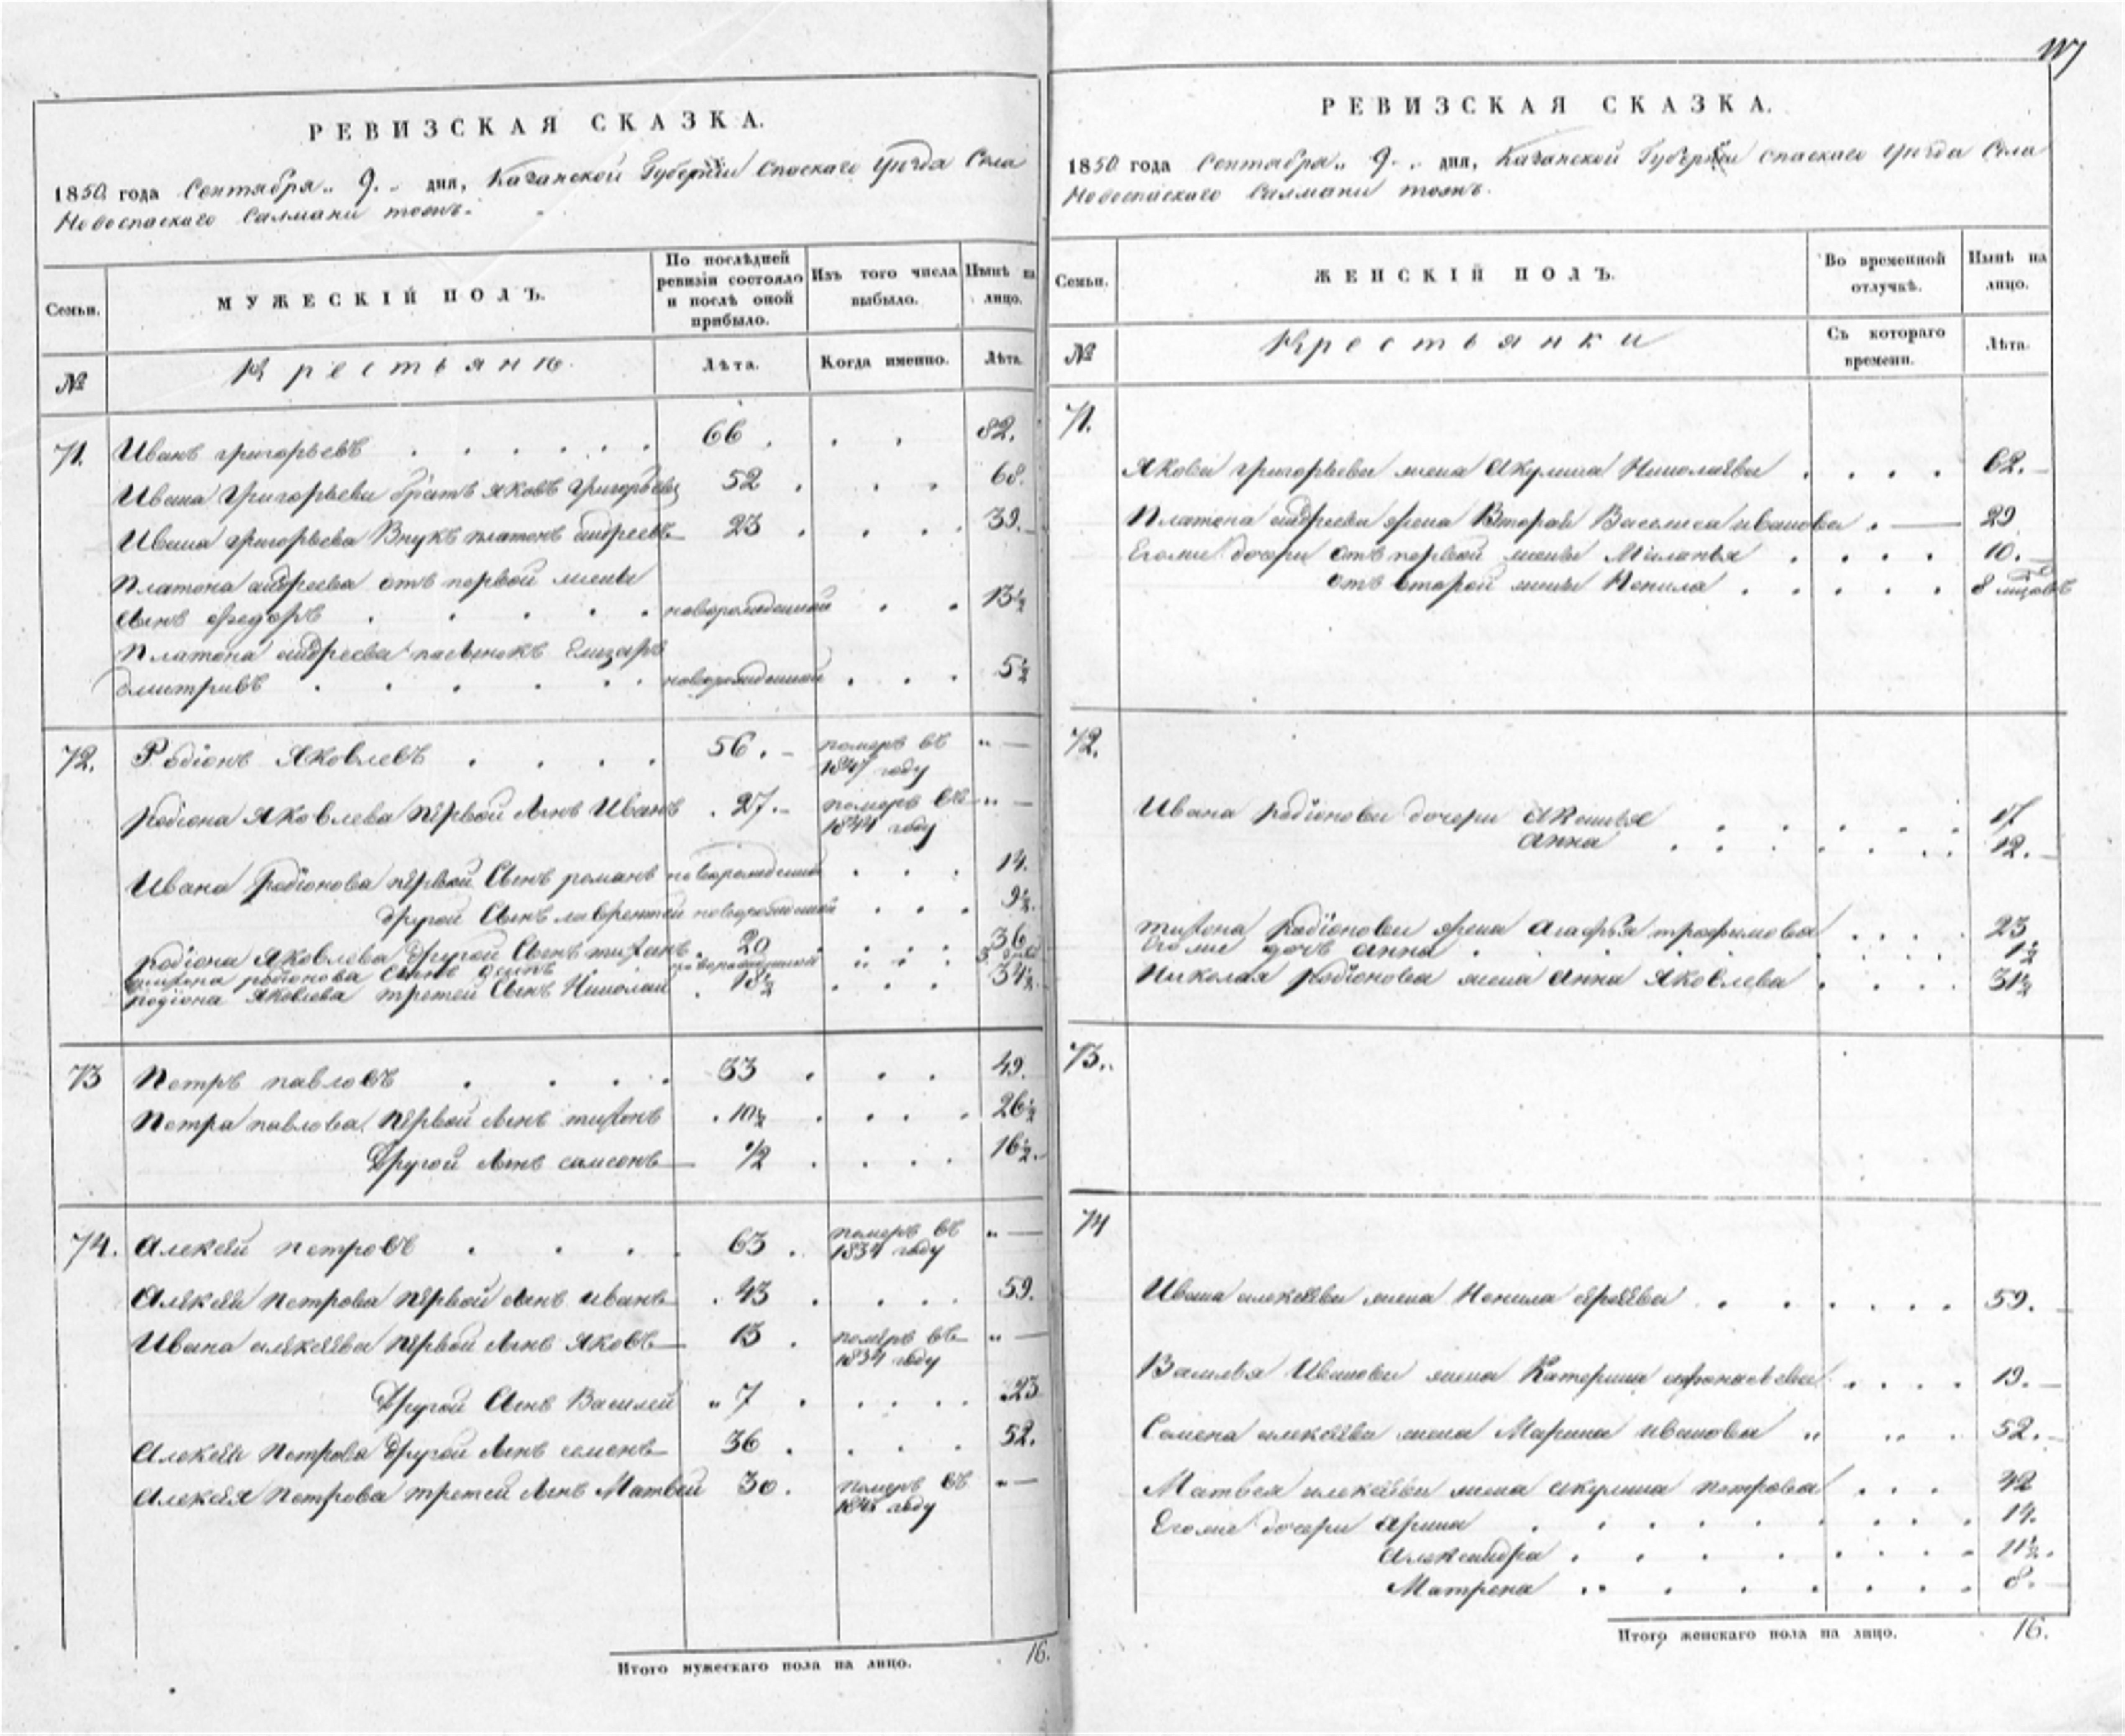 РЕВИЗСКАЯ СКАЗКА.
1850 года Сентября „ 9. „ дня, Казанской Губернiи Спаскаго уѣзда Села
Новоспаскаго Салманы тожъ.
Семьи.
МУЖЕСКIЙ ПОЛЪ.
По послѣдней ревизiи состояло и послѣ оной прибыло.
Изъ того числа выбыло.
Нынѣ на лицо.
№
Крестьяне.
Лѣта.
Когда именно.
Лѣта.
71. Иванъ григорьевъ 66. 82.
Ивана Григорьева братъ яковъ Григорьевъ 52 68.
Ивана григорьева Внукъ платонъ андреевъ 23 39.
Платона андреева отъ первой жены
сынъ федоръ новорожденный 13½
Платона андреева пасынокъ Елизаръ
дмитривъ новорожденный 5½
72. Родiонъ Яковлевъ 56. померъ въ „ —
1847 году
родiона Яковлева первой сынъ Иванъ 27. померъ въ „ —
1844 году
Ивана Родiонова первой сынъ романъ новорожденный 14.
другой Сынъ лаврентей новорожденный 9½.
родiона Яковлева другой Сынъ тихонъ 20 36
тихона родiонова сынъ новорожденной
родiона Яковлева третей Сынъ Николай 18½ 34½.
73 Петръ павловъ 33 49.
Петра павлова первой сынъ тихонъ 10½ 26½
Другой сынъ самсонъ ½ 16½.
74. Алексей петровъ 63. померъ въ „ —
1834 году
Алексея Петрова первой сынъ иванъ 43 59.
Ивана алексеева первой сынъ яковъ 13 померъ въ „ —
1834 году
Другой Сынъ Василей „ 7 23
Алексея Петрова другой сынъ семенъ 36 52.
Алексея Петрова третей сынъ Матвей 30. померъ въ „ —
году
Итого мужескаго пола на лицо. 16.
РЕВИЗСКАЯ СКАЗКА.
1850 года Сентября „ 9. „ дня, Казанской Губернiи спаскаго уѣзда Села
Новоспаскаго Салманы тожъ.
Семьи.
ЖЕНСКIЙ ПОЛЪ.
Во временной отлучкѣ.
Нынѣ на лицо.
№
Крестьянки
Съ котораго времени.
Лѣта.
71.
Якова григорьева жена Акулина Николаева 62.
Платона андреева жена Вторая Василиса иванова 29
Егоже дочери отъ первой жены Миланья 10.
отъ второй жены Ненила 8
72.
Ивана родiонова дочери 17
Анна 12.
тихона Родiонова жена Агафья трофимова 23
Егоже дочь анна 1½
Николая родiонова жена Анна Яковлева 31½
73.
74
Ивана алексеева жена Ненила 59.
Василья Иванова жена Катерина афонасьева 19.
Семена алексеева жена Марина иванова 52.
Матвея алексеева жена акулина петрова 42
Егоже дочери арина 14.
Александра 11½.
Матрена 8.
Итого женскаго пола на лицо. 16.